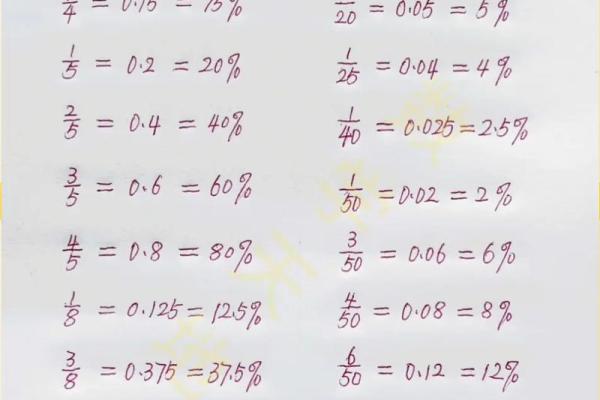 /4 = 0.75 = 75%
/20 = 0.05 = 5%
1/5 = 0.2 = 20%
1/25 = 0.04 = 4%
2/5 = 0.4 = 40%
1/40 = 0.025 = 2.5%
3/5 = 0.6 = 60%
1/50 = 0.02 = 2%
4/5 = 0.8 = 80%
3/50 = 0.06 = 6%
1/8 = 0.125 = 12.5%
4/50 = 0.08 = 8%
3/8 = 0.375 = 37.5%
6/50 = 0.12 = 12%